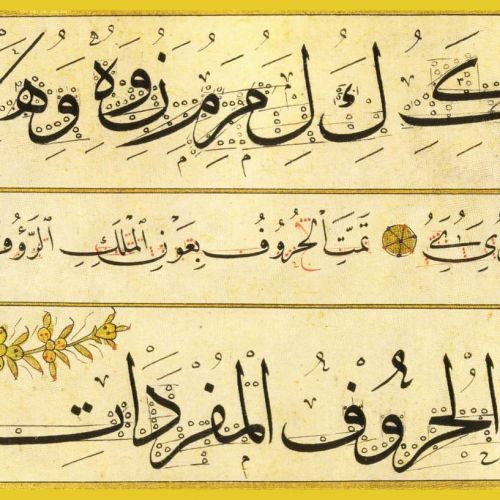 ك ك ل م م ن و ه و ه
ي تمت الحروف بعون الملك الرؤوف
الحروف المفردات